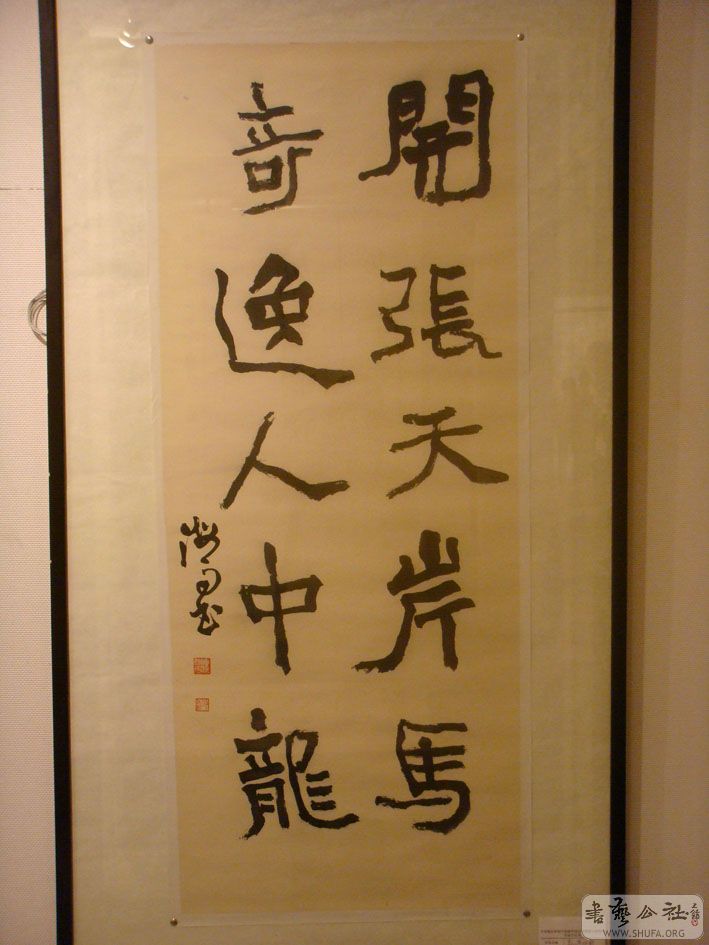 開張天岸馬
奇逸人中龍
書藝公社
WWW.SHUFA.ORG